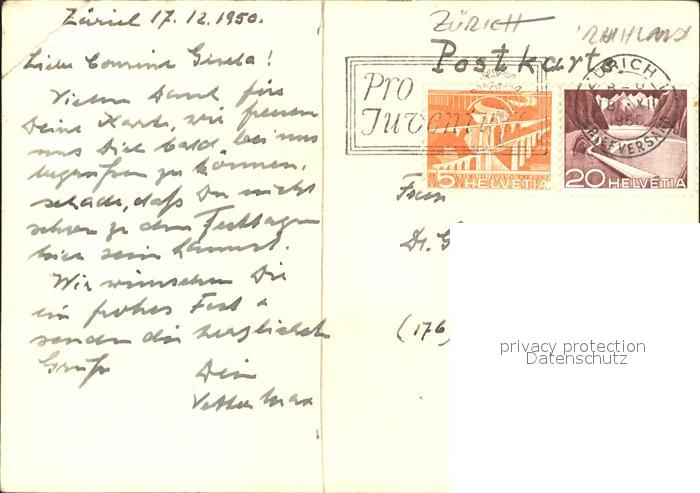 Zürich 17.12.1950.
Liebe Cousine Gisela!
Vielen Dank, für
Deine Karte, wir freuen
uns Dich bald, bei uns
begrüßen zu können,
schade, daß Du nicht
schon zu den Festtagen
hier sein kannst.
Wir wünschen Dir
ein frohes Fest &
senden dir herzlichste
Grüße
Dein
Vetter Max
ZÜRICH
Postkarte
Pro
Juventute
ZÜRICH
1950
BRIEFVERSAND
5 HELVETIA
20 HELVETIA
Frau
Dr. G
(17b)
privacy protection
Datenschutz